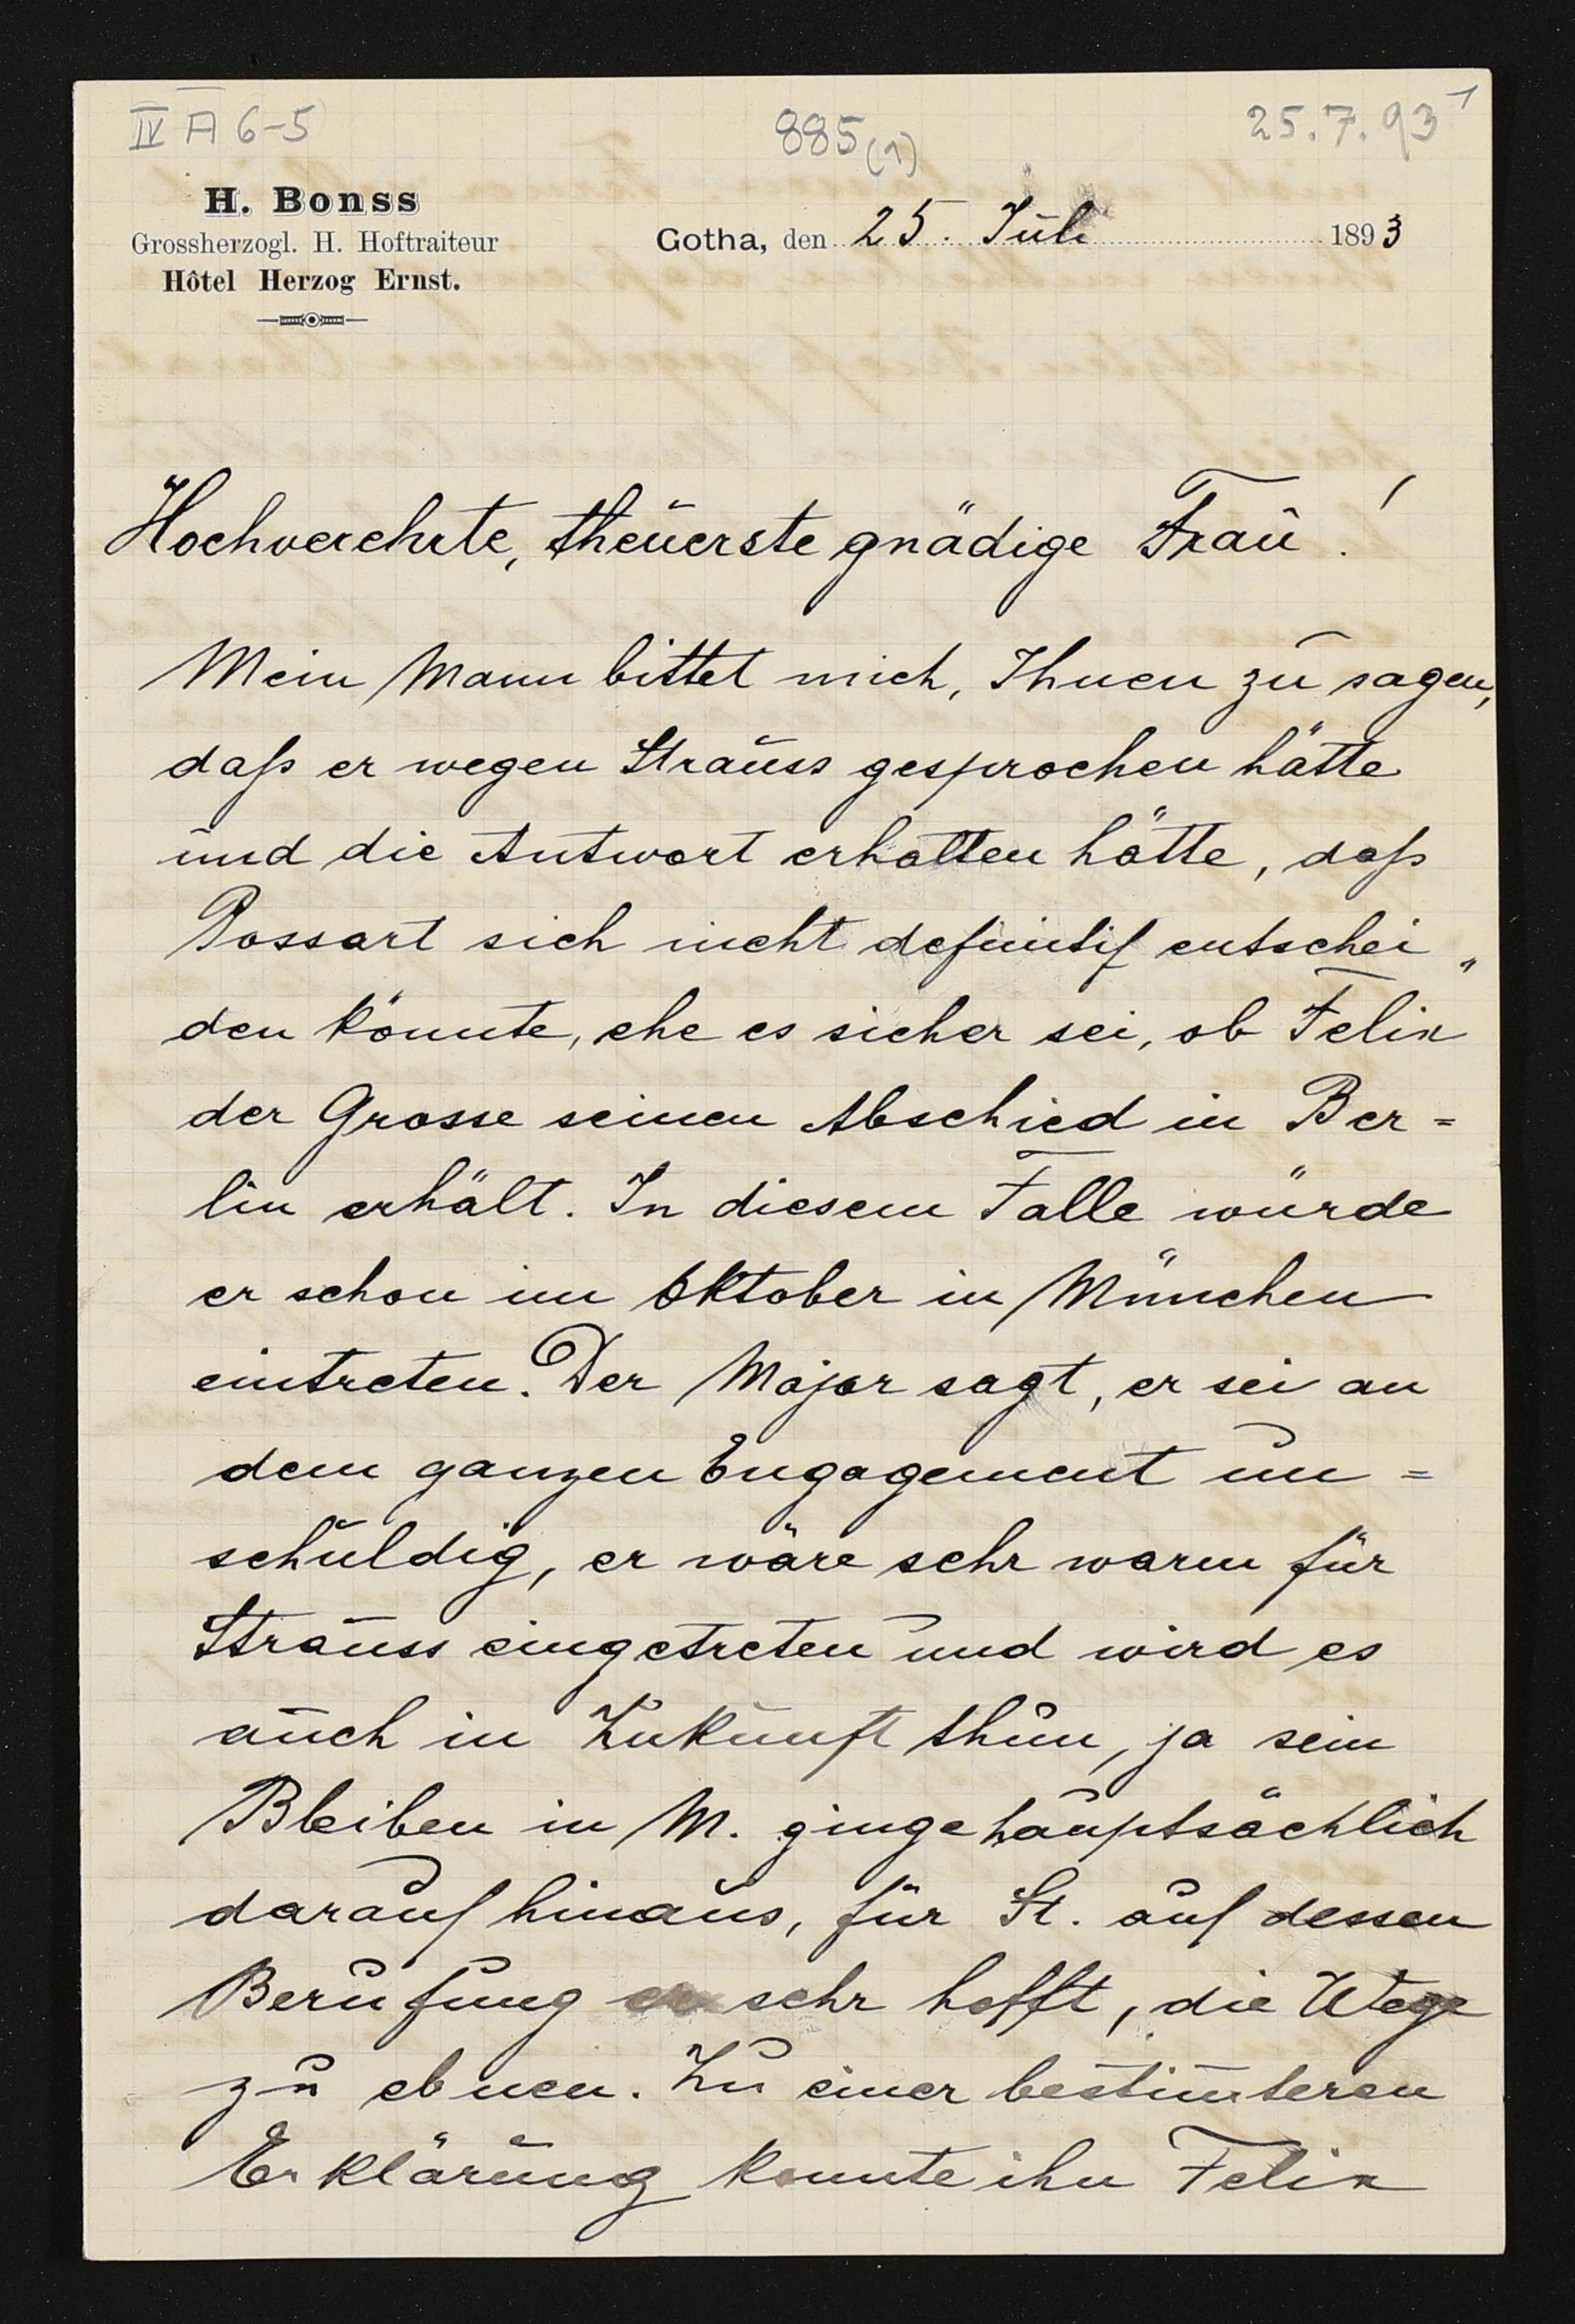 IV A 6-5
885 (1)
25.7.93
1
H. Bonss
Grossherzogl. H. Hoftraiteur
Hôtel Herzog Ernst.
Gotha, den 25. Juli 1893
Hochverehrte, theuerste gnädige Frau!
Mein Mann bittet mich, Ihnen zu sagen,
daß er wegen Strauss gesprochen hätte
und die Antwort erhalten hätte, daß
Possart sich nicht definitif entschei„
den könnte, ehe es sicher sei, ob Felix
der Grosse seinen Abschied in Ber=
lin erhält. In diesem Falle würde
er schon im Oktober in München
eintreten. Der Major sagt, er sei an
dem ganzen Engagement un=
schuldig, er wäre sehr warm für
Strauss eingetreten und wird es
auch in Zukunft thun, ja sein
Bleiben in M. ginge hauptsächlich
darauf hinaus, für St. auf dessen
Berufung er sehr hofft, die Wege
zu ebnen. Zu einer bestim̅teren
Erklärung konnte ihn Felix